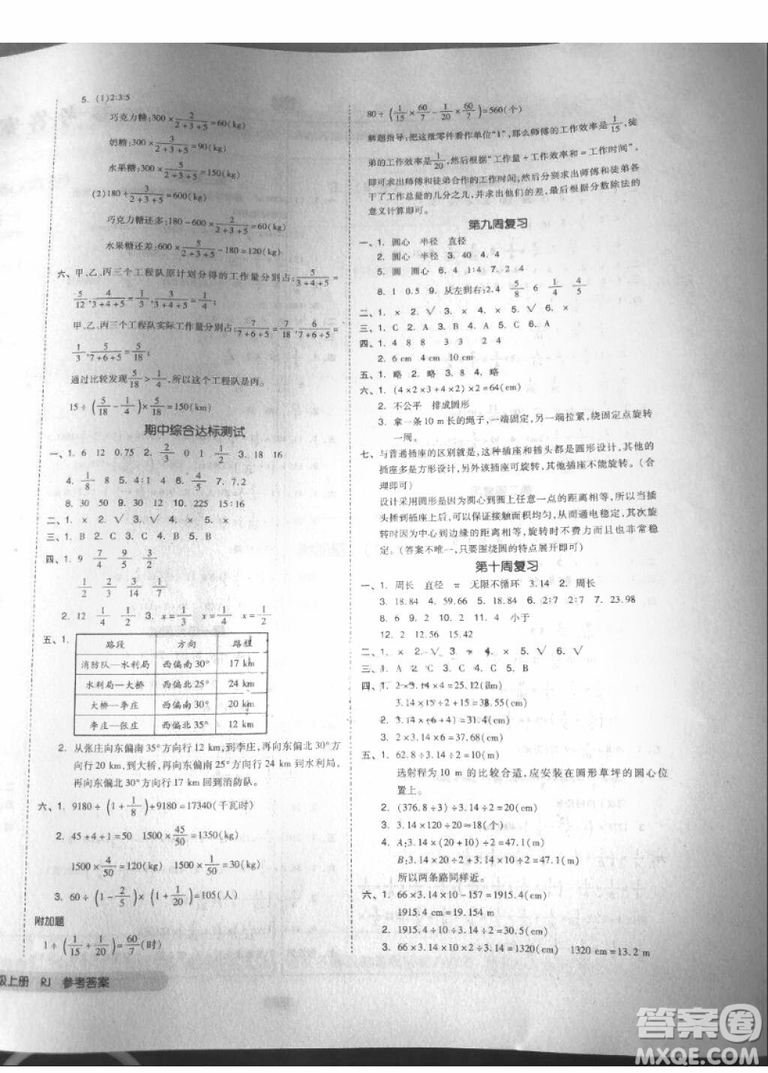 5. (1)2:3:5
巧克力糖:300×2/(2+3+5)=60(kg)
奶糖:300×3/(2+3+5)=90(kg)
水果糖:300×5/(2+3+5)=150(kg)
(2)180÷3/(2+3+5)=600(kg)
巧克力糖还多:180-600×2/(2+3+5)=60(kg)
水果糖还差:600×5/(2+3+5)-180=120(kg)
六、甲、乙、丙三个工程队原计划分得的工作量分别占:5/(3+4+6)
甲、乙、丙三个工程队实际工作量分别占:7/(7+6+5)
通过比较发现5/18>1/4,所以这个工程队是丙队。
15÷(5/18-1/4)×5/18=150(km)
期中综合达标测试
一、1. 6 12 0.75 2. 2/3 0 1 1/2 3. 18 16
4. 1/8 5. 4 6. 4 7. > < = >
8. 30 50 9. 12 10. 225 15:16
二、1. × 2. √ 3. √ 4. × 5. ×
三、1. C 2. B 3. A 4. B 5. C
四、1. 9/4 7/9 4/5 9/2
1/3 2/3 3/14 1/7
2. 12 1/4 1/3 x=1/4 x=1/2
五、1.
路段 方向 路程
消防队—水利局 西偏南30° 17 km
水利局—大桥 西偏南45° 24 km
大桥—李庄 西偏南30° 20 km
李庄—张庄 西偏北35° 12 km
2. 从张庄向东偏南35°方向行12 km,到李庄,再向东偏北30°方
向行20 km,到大桥,再向东偏北45°方向行24 km到水利
局,再向东偏北30°方向行17 km回到消防队。
六、1. 9180÷(1+1/8)+9180=17340(千瓦时)
2. 45+4+1=50 1500×45/50=1350(kg)
1500×4/50=120(kg) 1500×1/50=30(kg)
3. 60÷(1-2/5)×(1+1/20)=105(人)
附加题
1÷(1/15+1/20)=60/7(时)
80÷(1/15×60/7-1/20×60/7)=560(个)
解题指导:把这批零件看作单位“1”,那么师傅的工作效率是1/15,徒
弟的工作效率是1/20,然后根据“工作量÷工作效率和=工作时间”
即可求出师傅和徒弟合作的工作时间,然后求出师傅和徒弟各
干了工作总量的几分之几,并求出它们的差,再根据分数除法的
意义计算即可。
第九周复习
一、1. 圆心 半径 直径
2. 圆心 半径 3. 40 4. 4
5. 圆 圆心 6. 4 4 7. 2
8. 1 0.5 9. 从左到右:5/8 6 1/4 4/5
二、1. × 2. × 3. √ 4. × 5. √ 6. ×
三、1. C 2. A 3. B 4. A 5. C
四、1. ×
2. 6 cm 4 cm 10 cm
五、1. 略 2. 略 3. 8 4. 略
六、1. (4×2×3+4×2)×2=64(cm)
2. 不公平 排成圆形
3. 拿一条10 m长的绳子,一端固定,另一端拉紧,绕固定点旋转
一周。
七、与普通插座的区别就是,这种插座和插头都是圆形设计,其他
插座是多方形设计,另外该插座可以旋转,其他插座不能。(合
理即可)
设计采用圆形是因为圆心到圆上任意一点的距离相等,当插
头插到插座中,可以保证接触面积均匀,通电稳定,其次,旋
转时因为中心到边缘的距离相等,旋转时不会影响插座的稳
定。(答案不唯一,只要围绕圆的特点展开即可)
第十周复习
一、1. 周长 直径 π 无限不循环 3.14 2. 周长
3. 18.84 4. 59.66 5. 18.84 6. 21.7 7. 23.98
8. 6 9. 2 2 10. 4 4 11. 小于
12. 2 12.56 15.42
二、1. × 2. √ 3. √ 4. × 5. √
三、1. A 2. C 3. C 4. A 5. C
四、1. 3.14×4×2=25.12(cm)
3.14×15÷2+15=38.55(cm)
2.
五、1. 62.8÷3.14÷2=10(m)
选射程为10 m的比较合适,应安装在圆形草坪的圆心位
置上。
2. (376.8÷3)÷3.14÷2=20(cm)
3. 3.14×120÷20≈18(个)
4. A:3.14×(10+20)÷2=47.1(m)
B:3.14×10÷2+3.14×20÷2=47.1(m)
所以两条路同样近。
六、1. 66×3.14×10-157=1915.4(cm)
1915.4 cm=19.154 m
2. 1915.4÷
3. 66×3.14×10≈1320(cm) 1320 cm=13.2 m
级上册 RJ 参考答案
答案圈
MXQE.COM